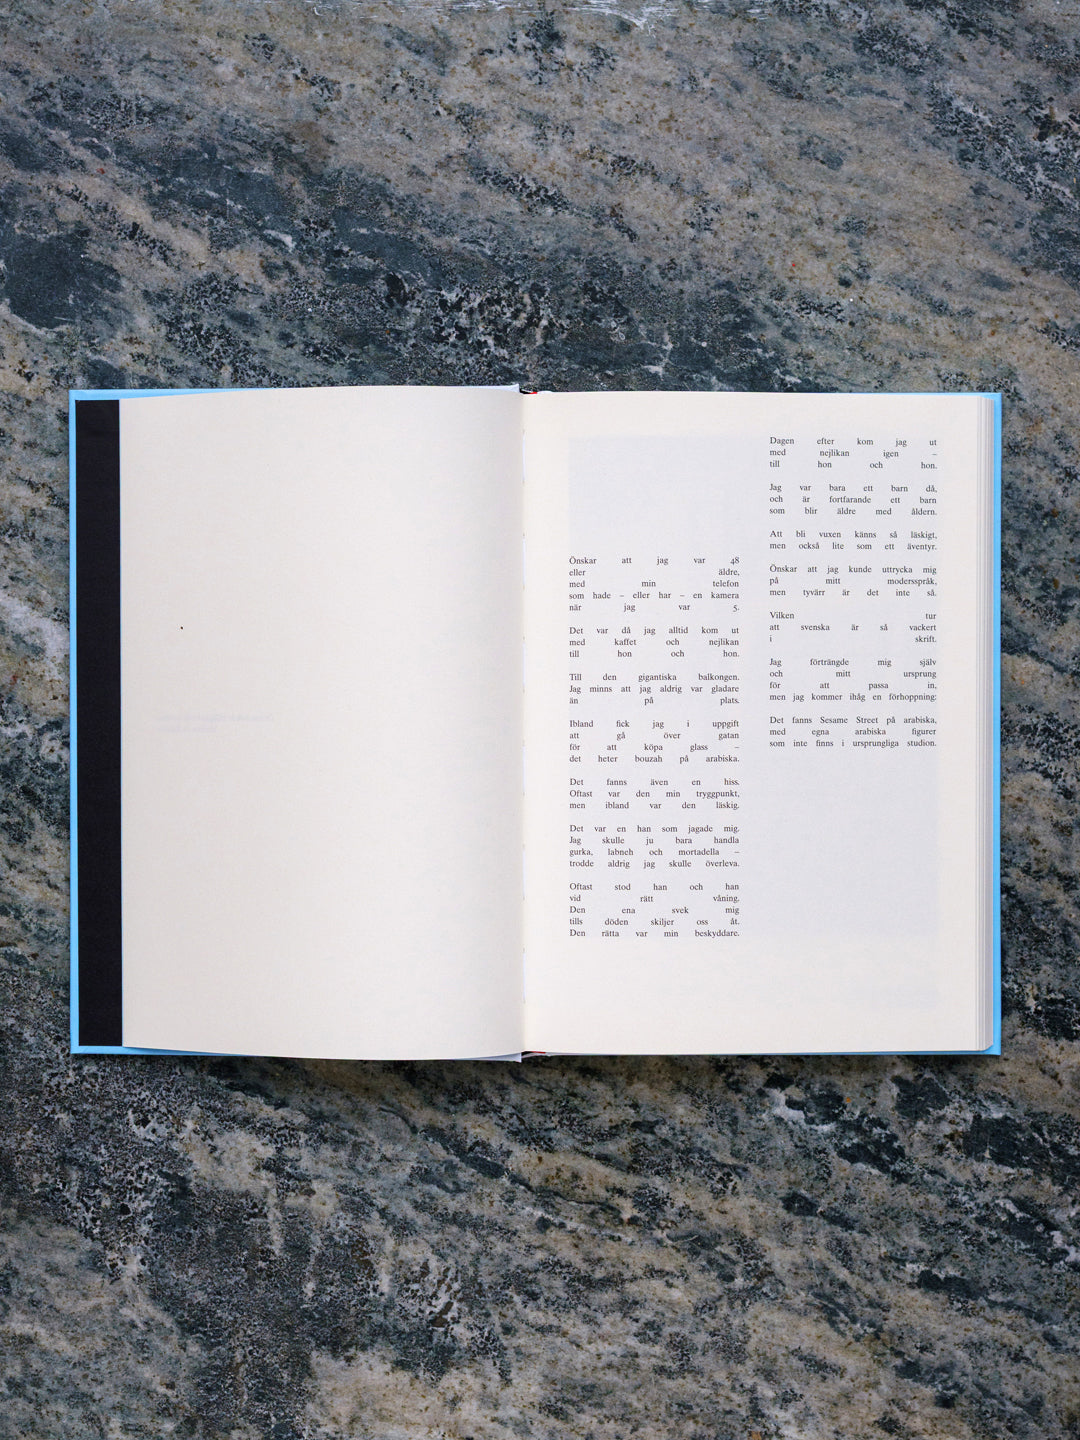 Önskar att jag var 48
eller äldre,
med min telefon
som hade – eller har – en kamera
när jag var 5.
Det var då jag alltid kom ut
med kaffet och nejlikan
till hon och hon.
Till den gigantiska balkongen.
Jag minns att jag aldrig var gladare
än på plats.
Ibland fick jag i uppgift
att gå över gatan
för att köpa glass –
det heter bouzah på arabiska.
Det fanns även en hiss.
Oftast var den min tryggpunkt,
men ibland var den läskig.
Det var en han som jagade mig.
Jag skulle ju bara handla
gurka, labneh och mortadella –
trodde aldrig jag skulle överleva.
Oftast stod han och han
vid rätt våning.
Den ena svek mig
tills döden skiljer oss åt.
Den rätta var min beskyddare.
Dagen efter kom jag ut
med nejlikan igen –
till hon och hon.
Jag var bara ett barn då,
och är fortfarande ett barn
som blir äldre med åldern.
Att bli vuxen känns så läskigt,
men också lite som ett äventyr.
Önskar att jag kunde uttrycka mig
på mitt modersspråk,
men tyvärr är det inte så.
Vilken tur
att svenska är så vackert
i skrift.
Jag förträngde mig själv
och mitt ursprung
för att passa in,
men jag kommer ihåg en förhoppning:
Det fanns Sesame Street på arabiska,
med egna arabiska figurer
som inte finns i ursprungliga studion.